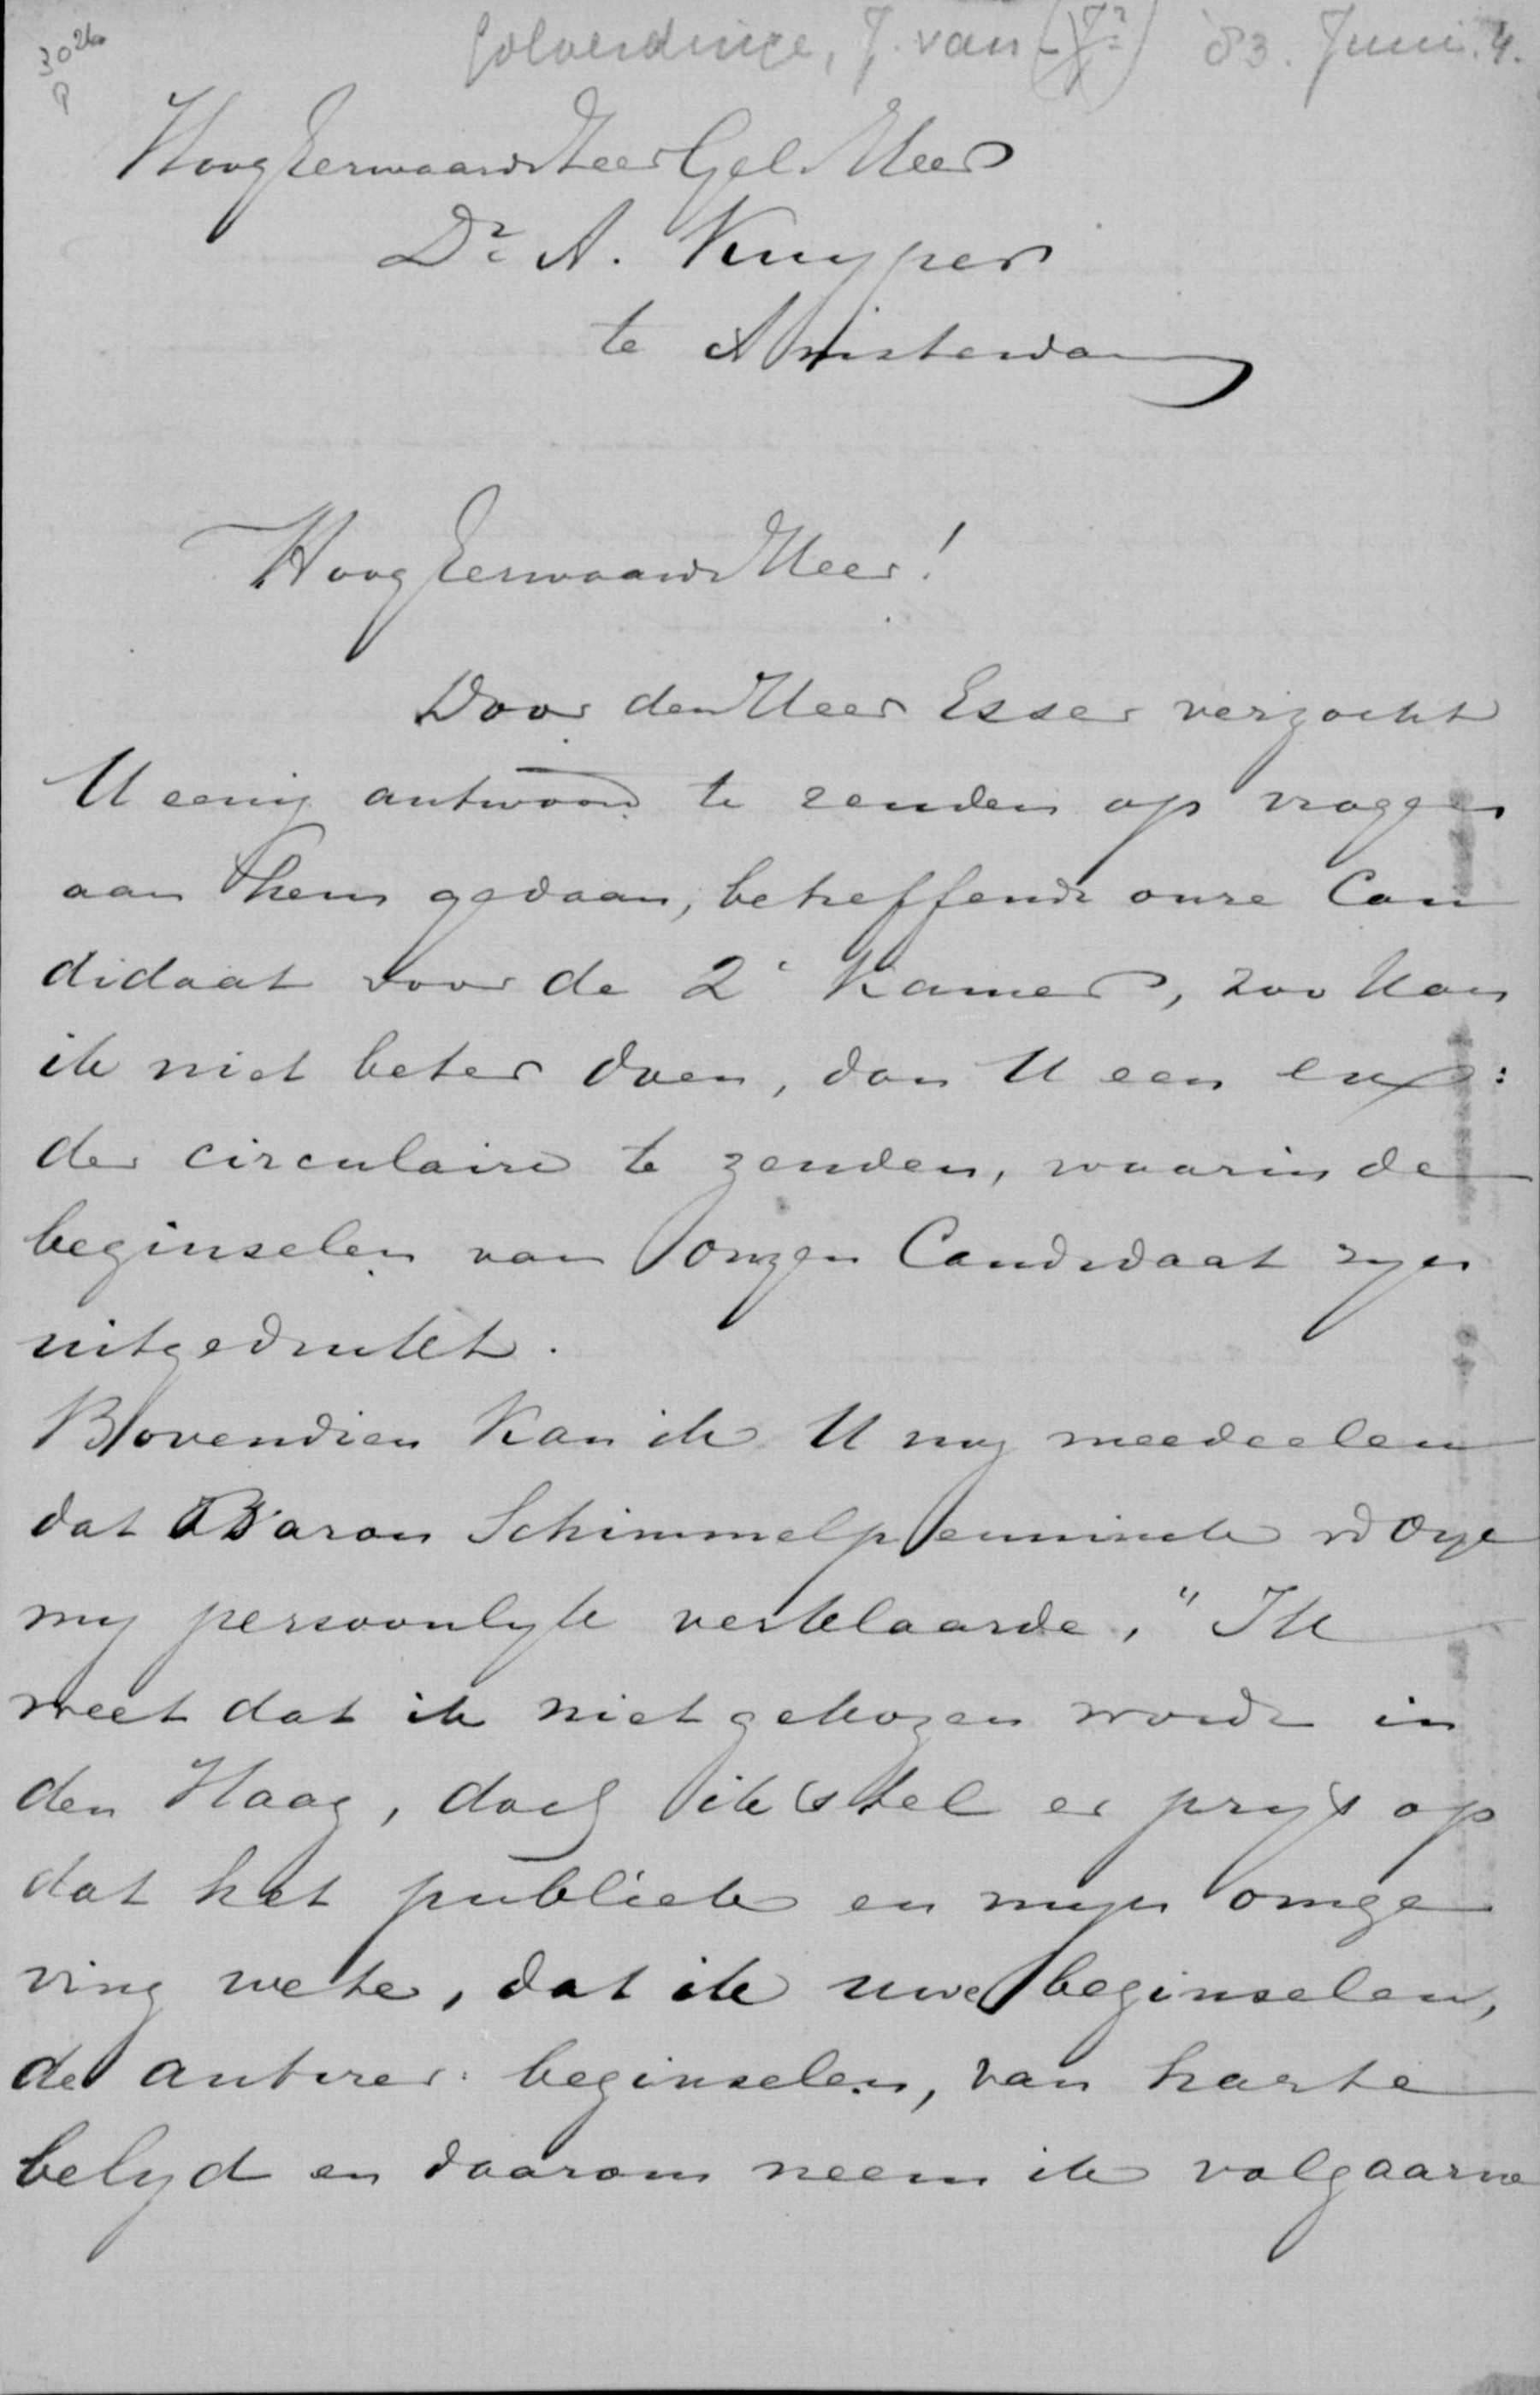 Golverdinge, J. van (J?) '83. Juni. 4.
HoogEerwaardZeerGel. Heer
Dr. A. Kuyper
te Amsterdam
HoogEerwaarde Heer!
Door den Heer Esser verzocht
U eenig antwoord te zenden op vragen
aan hem gedaan, betreffende onze Can
didaat voor de 2e Kamer, zoo kan
ik niet beter doen, dan U een ex:
der circulaire te zenden, waarin de
beginselen van onzen Candidaat zyn
uitgedrukt.
Bovendien kan ik U nog meedeelen
dat Baron Schimmelpenninck vd Oye
my persoonlyk verklaarde, "Ik
weet dat ik niet gekozen word in
den Haag, doch ik stel er prys op
dat het publiek en myn omge
ving wete, dat ik uwe beginselen,
de antirev: beginselen, van harte
belyd en daarom neem ik volgaarne